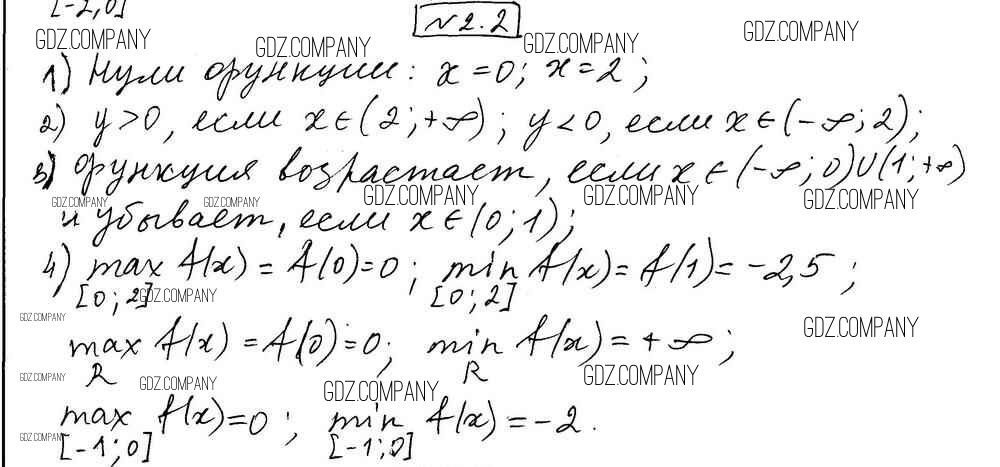 [-2,0]
№2.2
GDZ.COMPANY GDZ.COMPANY GDZ.COMPANY GDZ.COMPANY
1) Нули функции: x=0; x=2;
2) y>0, если x∈(2;+∞); y<0, если x∈(-∞;2);
3) функция возрастает, если x∈(-∞;0)∪(1;+∞)
GDZ.COMPANY GDZ.COMPANY GDZ.COMPANY GDZ.COMPANY GDZ.COMPANY
и убывает, если x∈(0;1);
4) max f(x) = f(0)=0; min f(x)=f(1)=-2,5;
[0;2] GDZ.COMPANY [0;2]
GDZ.COMPANY GDZ.COMPANY
max f(x)=f(0)=0; min f(x)=+∞;
R R
GDZ.COMPANY GDZ.COMPANY GDZ.COMPANY GDZ.COMPANY
max f(x)=0; min f(x)=-2.
GDZ.COMPANY
[-1;0] [-1;0]